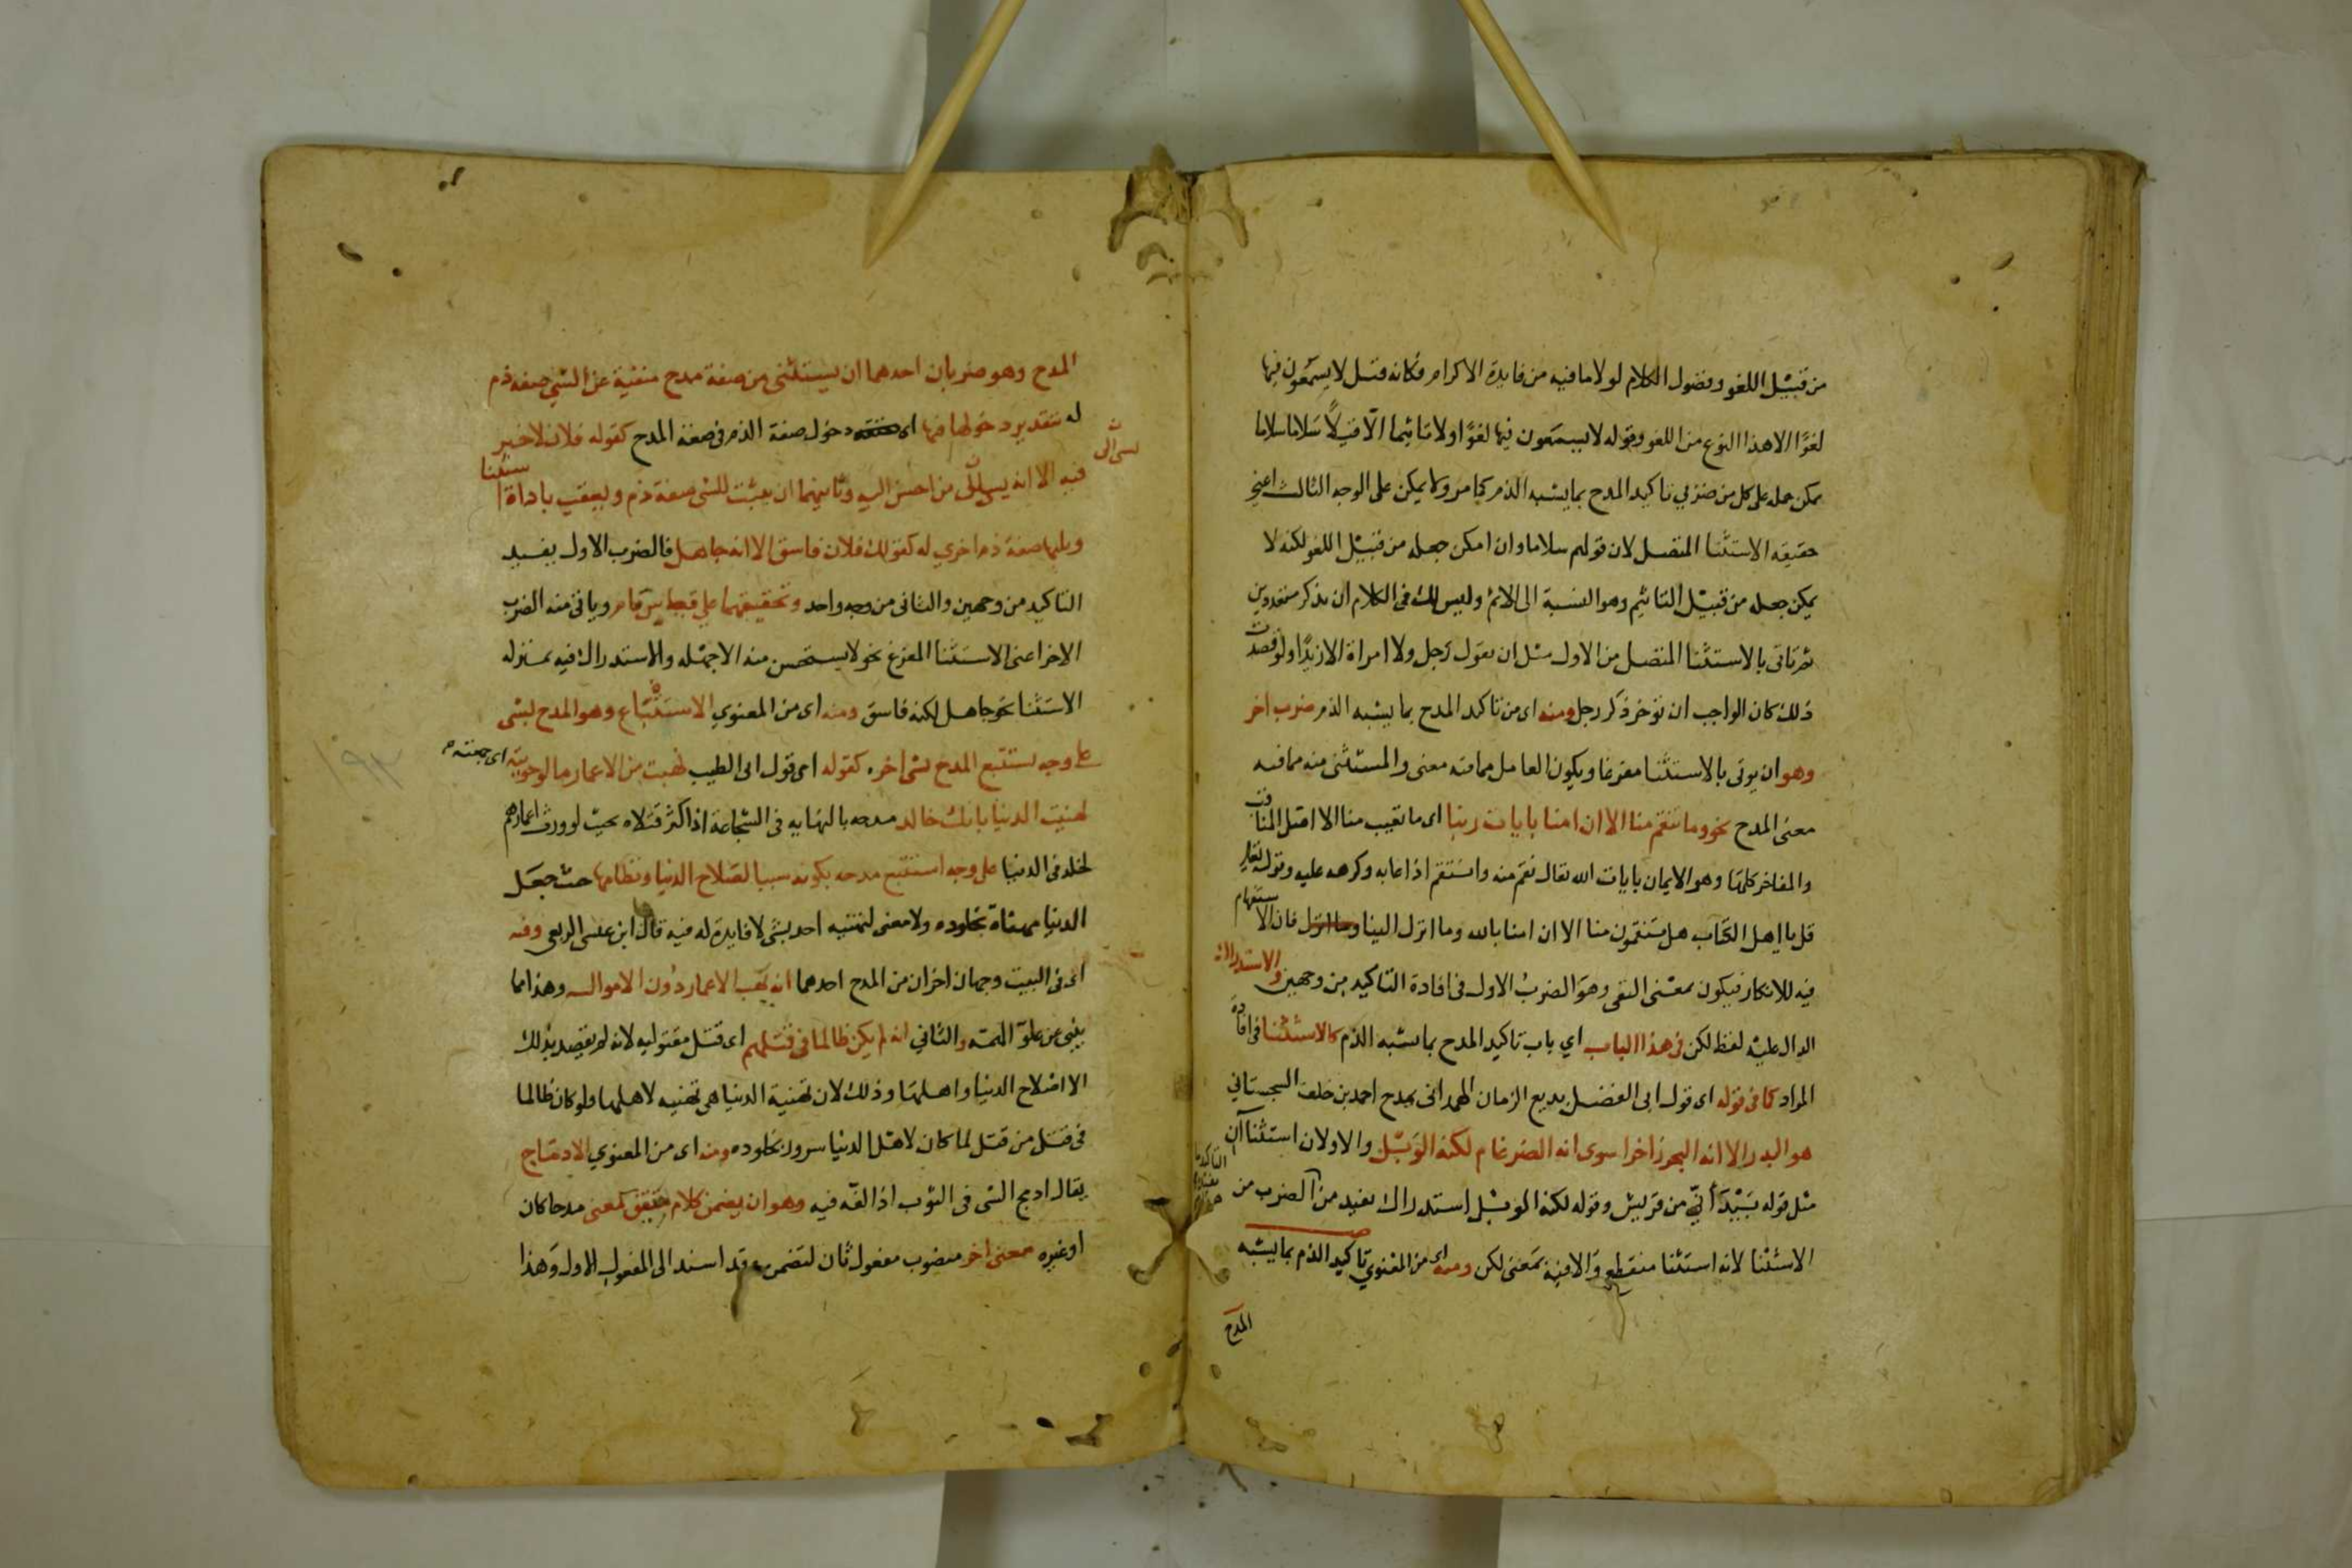 من قبيل اللغو وفضول الكلام لولا ما فيه من فايدة الاكرام فكانه قيل لا يسمعون فيها
لغوًا الا هذا النوع من اللغو وقوله لا يسمعون فيها لغوًا ولا تاثيما الا قيلًا سَلاما سلاما
يمكن حمله على كل من ضربي تاكيد المدح بما يشبه الذم كما مر ولا يمكن على الوجه الثالث اعني
حقيقه الاستثنا المتصل لان قولهم سلاما وان امكن جعله من قبيل اللغو لكنه لا
يمكن جعله من قبيل التاثيم وهو النسبة الى الاثم وليس لك في الكلام ان تذكر متعددين
ثم تاتى بالاستثنا المتصل من الاول مثل ان تقول رجل ولا امراة الا زيدًا ولو قصدت
ذلك كان الواجب ان توخر ذكر رجل ومنه اى من تاكيد المدح بما يشبه الذم ضرب اخر
وهو ان يوتى بالاستثنا مفرغا ويكون العامل مما فيه معنى والمستثنى منه مما فيه
معنى المدح نحو وما تنقم منا الا ان امنا بايات ربنا اى ما تعيب منا الا اصل المناقب
والمفاخر كلها وهو الايمان بايات الله يقال نقم منه وانتقم اذا عابه وكرهه عليه وقوله تعالى
قل يا اهل الكتاب هل تنقمون منا الا ان امنا بالله وما انزل الينا فان الاستفهام
فيه للانكار فيكون بمعنى النفى وهو الضربُ الاول في افادة التاكيد من وجهين والاستدراك
الدال عليه لفظ لكن في هذا الباب اي باب تاكيد المدح بما يشبه الذم كالاستثنا في افادة
المراد كما في قوله اى قول ابى الفضل بديع الزمان الهمدانى يمدح احمد بن خلف السجستاني
هو البدر الا انه البحر زاخرا سوى انه الضرغام لكنه الوَبْل والاولان استثناآن
مثل قوله بَيْدَ أنّي من قريش وقوله لكنه الوبل استدراك يفيد من الضرب من
الاستثنا لانه استثنا منقطع والا فيه بمعنى لكن ومنه اى من المعنوي تاكيد الذم بما يشبه
المدح
المدح وهو ضربان احدهما ان يستثنى من صفة مدح منفية عن الشي صفه ذم
له بتقدير دخولها فيها اى دخول صفة الذم في صفة المدح كقوله فلان لا خير
فيه الا انه يسي الى من احسن اليه وثانيهما ان يثبت للشي صفة ذم ويعقب باداة استثنا
ويليها صفة ذم اخري له كقولك فلان فاسق الا انه جاهل فالضرب الاول يفيد
التاكيد من وجهين والثانى من وجه واحد وتحقيقهما على قياس ما مر وياتى منه الضرب
الاخر اعنى الاستثنا المفرغ نحو لا يستحسن منه الا جهله والاستدراك فيه بمنزله
الاستثنا نحو جاهل لكنه فاسق ومنه اى من المعنوي الاستتباع وهو المدح لشى
على وجه يستتبع المدح لشى اخر كقوله اى قول ابى الطيب نهبت من الاعمار ما لو حويته اى جمعته
لهنيت الدنيا بانك خالد مدحه بالنهايه فى الشجاعة اذ اكثر قتلاه بحيث لو ورث اعمارهم
لخلد في الدنيا على وجه استتبع مدحه بكونه سببا لصلاح الدنيا ونظامها حيث جعل
الدنيا مهناة بخلوده ولا معنى لتهنيه احد بشى لا فايدة له فيه قال ابن عيسى الربعى وفيه
اى في البيت وجهان اخران من المدح احدهما انه نهب الاعمار دون الاموال وهذا مما
ينبي عن علو الهمة والثاني انه لم يكن ظالما في قتلهم اى قتل مقتوليه لانه لم يقصد بذلك
الا اصلاح الدنيا واهلها وذلك لان تهنية الدنيا هى تهنيه لاهلها ولو كان ظالما
فى قتل من قتل لما كان لاهل الدنيا سرور بخلوده ومنه اى من المعنوي الادماج
يقال ادمج الشى فى الثوب اذا لفه فيه وهو ان يضمن كلام سيق لمعنى مدحا كان
او غيره معنى اخر منصوب مفعول ثان ليضمن وقد اسند الى المفعول الاول وهذا